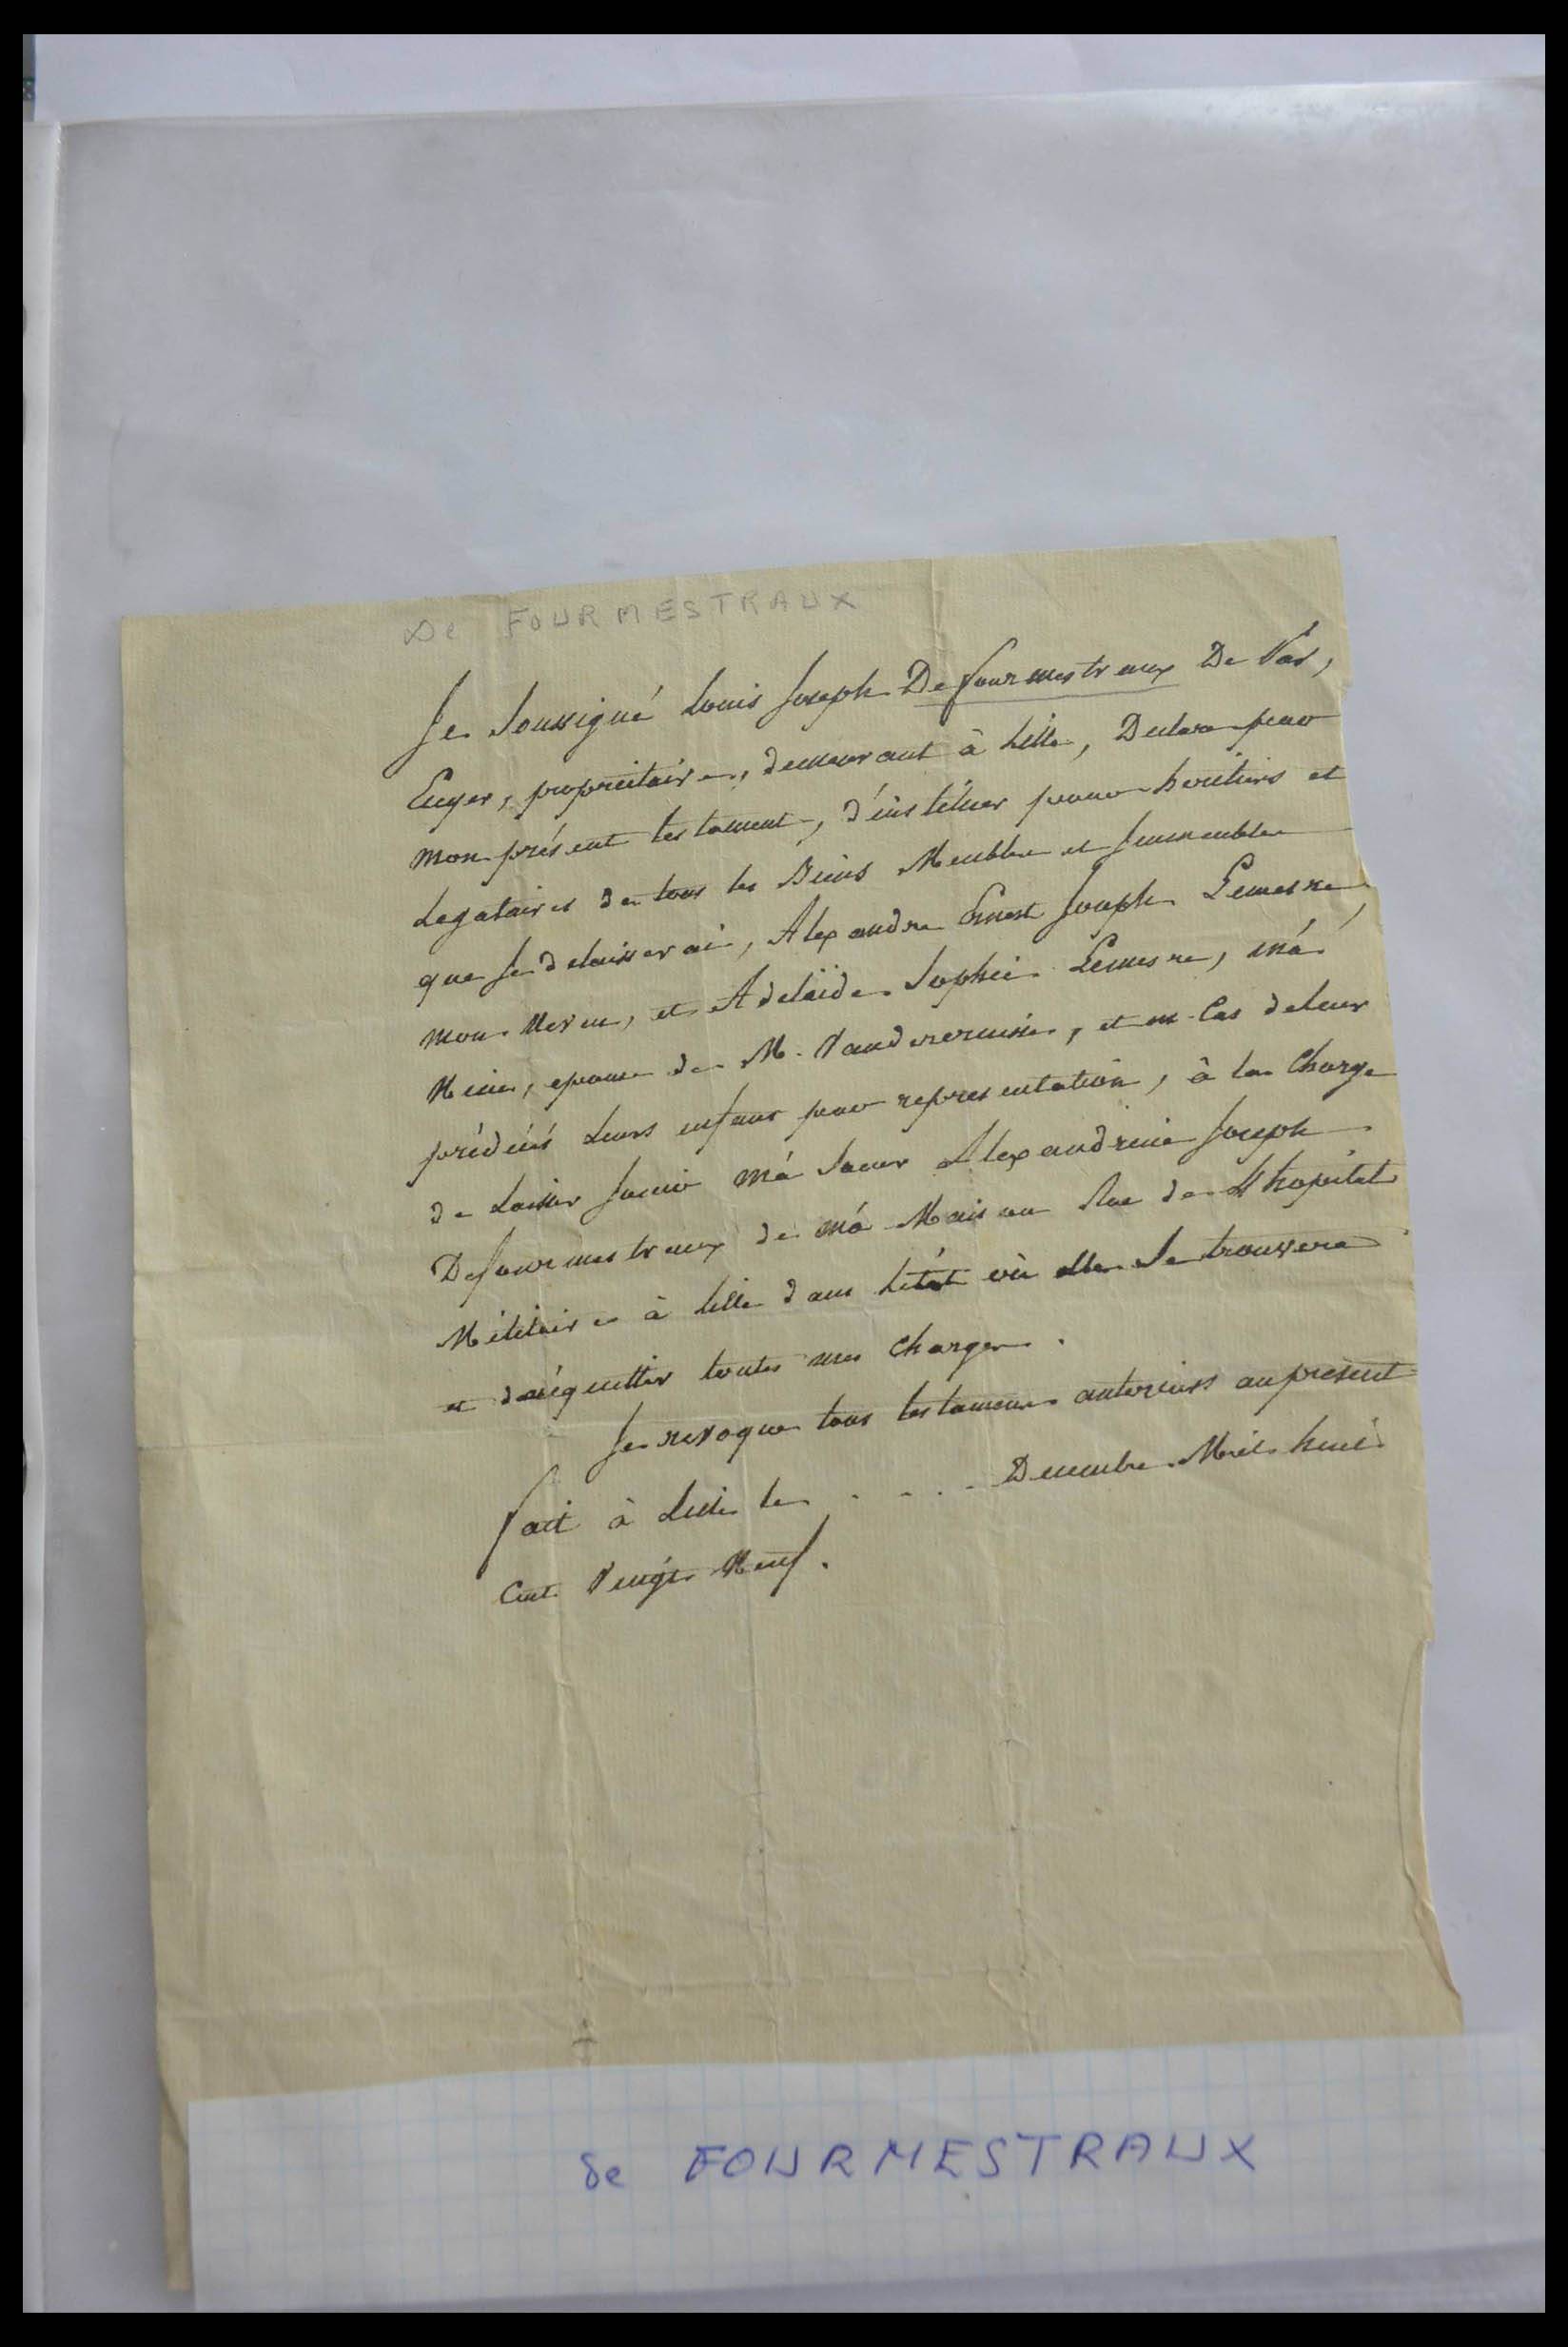 De FOURMESTRAUX
Je Soussigné Louis Joseph Defourmestraux De Vas,
Ecuyer, propriétaire, demeurant à Lille, Declare par
mon présent testament, d'instituer pour heritiers et
Legataires de tous les Biens Meubles et Immeubles
que Je delaisserai, Alexandre Ernest Joseph Lemesre,
mon Neveu, et Adelaïde Sophie Lemesre, má
Niece, epouse de M. et en Cas de leur
prédécés Leurs enfans par representation, à la Charge
de Laisser Jouir má Soeur Alexandrine Joseph
Defourmestraux de má Maison Rue de L'hopital
Militaire à Lille dans L'état où elle Se trouvera
et d'acquitter toutes mes Charges.
Je revoque tous testamens anterieurs au present
fait à Lille le . . . . Decembre Mil huit
Cent Vingt Neuf.
de FOURMESTRAUX